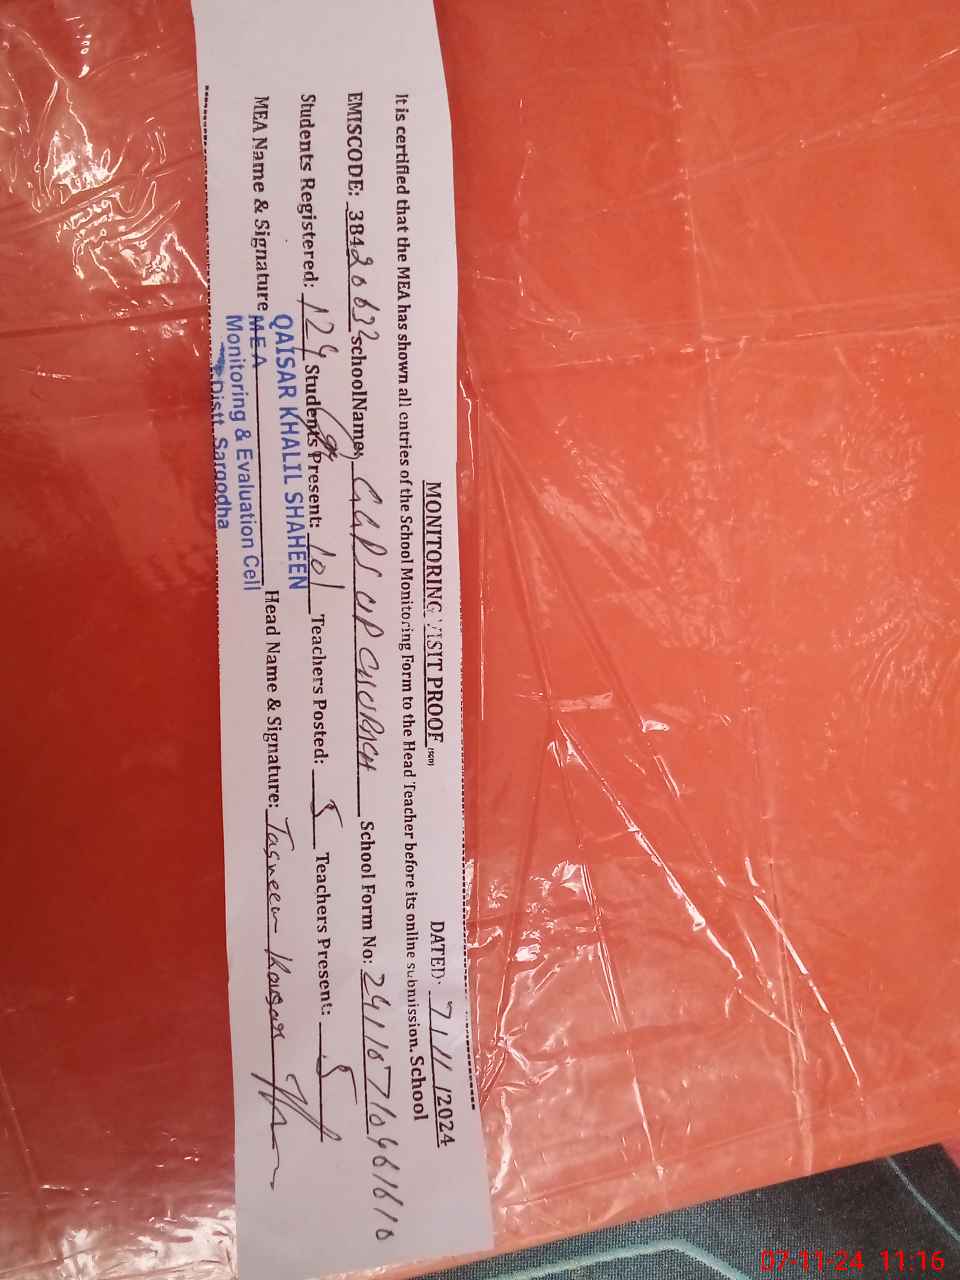 MONITORING VISIT PROOF DATED: 7/11/2024
It is certified that the MEA has shown all entries of the School Monitoring Form to the Head Teacher before its online submission. School
EMISCODE: 38420632 schoolName: GGPS UP CHURCH School Form No:
Students Registered: 124 Students Present: 101 Teachers Posted: 5 Teachers Present: 5
MEA Name & Signature Head Name & Signature: Tasneem Kousar
QAISAR KHALIL SHAHEEN
M E A
Monitoring & Evaluation Cell
Distt. Sargodha
07-11-24 11:16